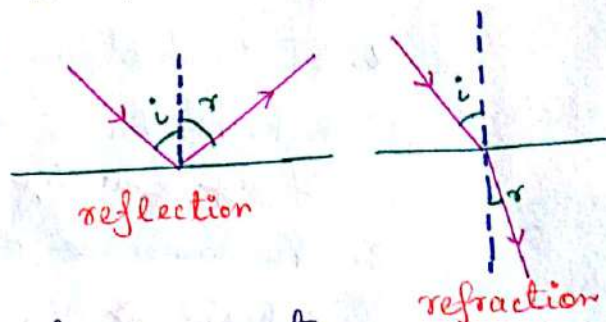 i r
reflection
i
r
refraction